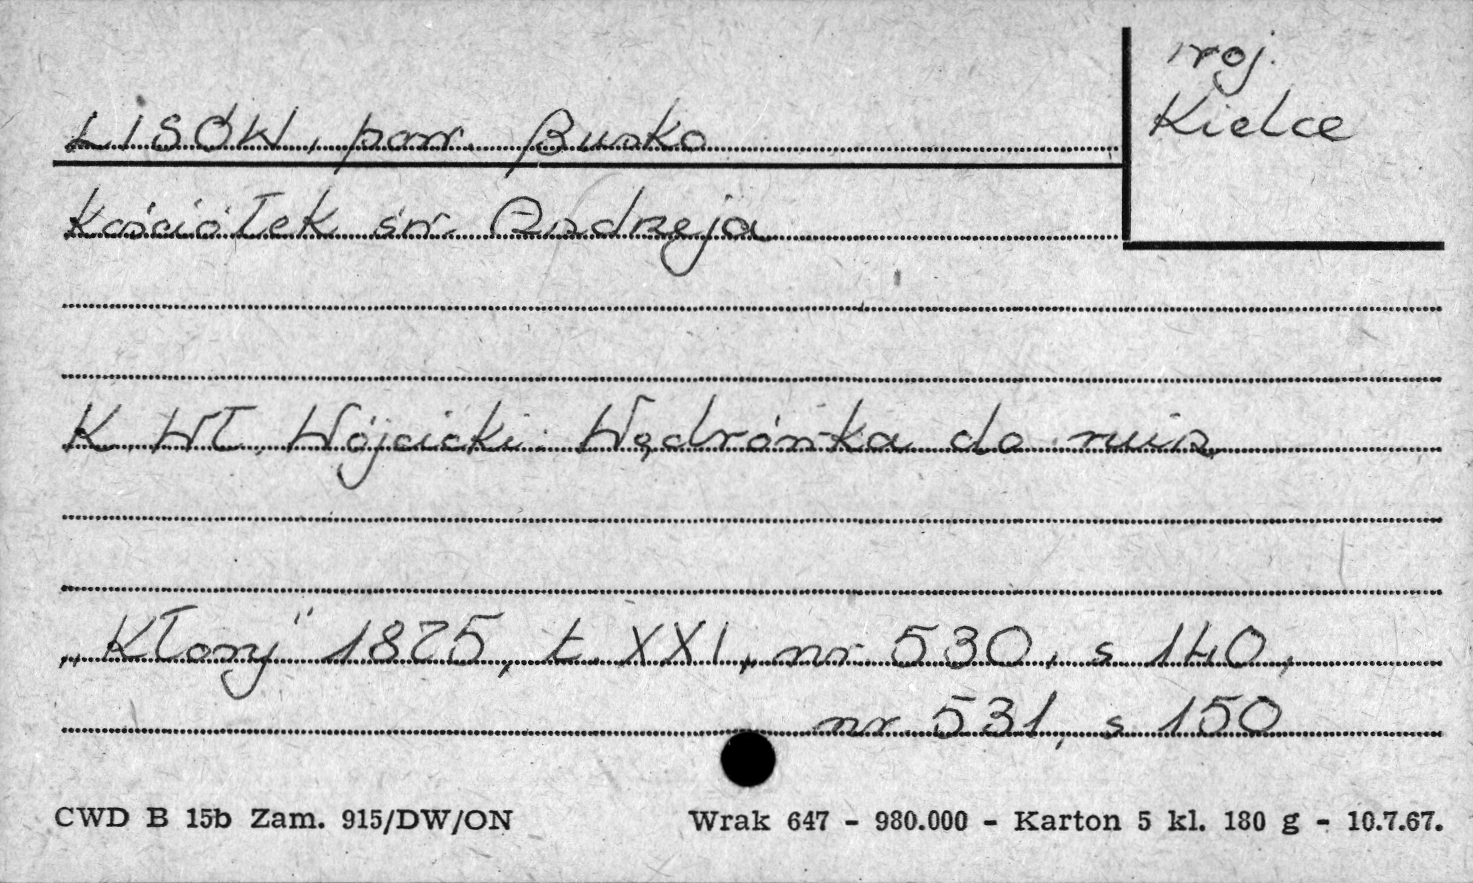 woj.
Kielce
LISÓW, pow. Busko
Kościółek św. Andrzeja
K. Wł. Wójcicki: Wędrówka do ruin
„Kłosy" 1875, t. XXI, nr 530, s 140,
nr 531, s 150
CWD B 15b Zam. 915/DW/ON
Wrak 647 - 980.000 - Karton 5 kl. 180 g - 10.7.67.